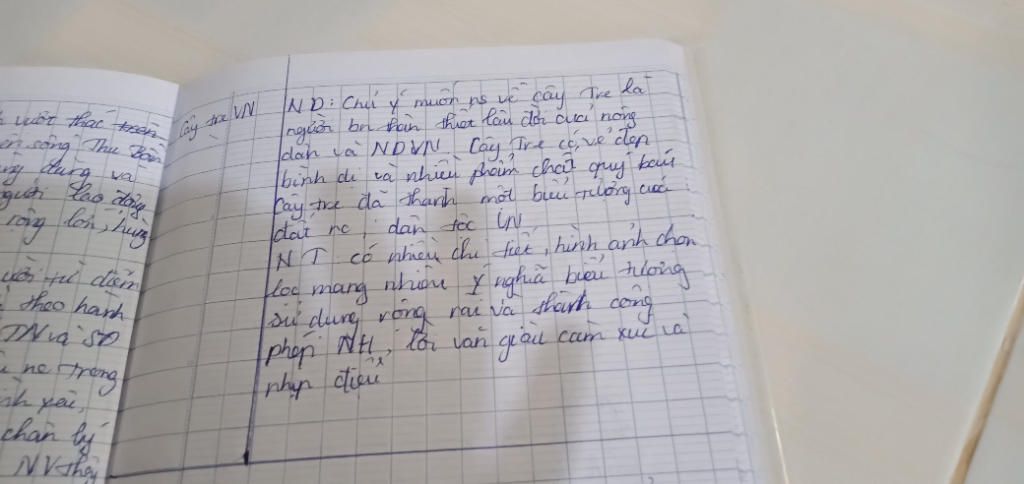 vượt thác trên
sông Thu Bồn
dũng và
người lao động
rộng lớn, hùng
từ điểm
theo hành
TN và SD
trong
yêu,
chân lý
NV thầy
Cây tre VN
ND: Chú ý muốn ns về cây Tre là
người bn thân thiết lâu đời của nông
dân và NDVN. Cây Tre có vẻ đẹp
bình dị và nhiều phẩm chất quý báu
Cây tre đã thành một biểu tượng của
đất nc, dân tộc VN
NT có nhiều chi tiết, hình ảnh chọn
lọc mang nhiều ý nghĩa biểu tượng
sử dụng rộng rãi và thành công
phép NH, lời văn giàu cảm xúc và
nhịp điệu